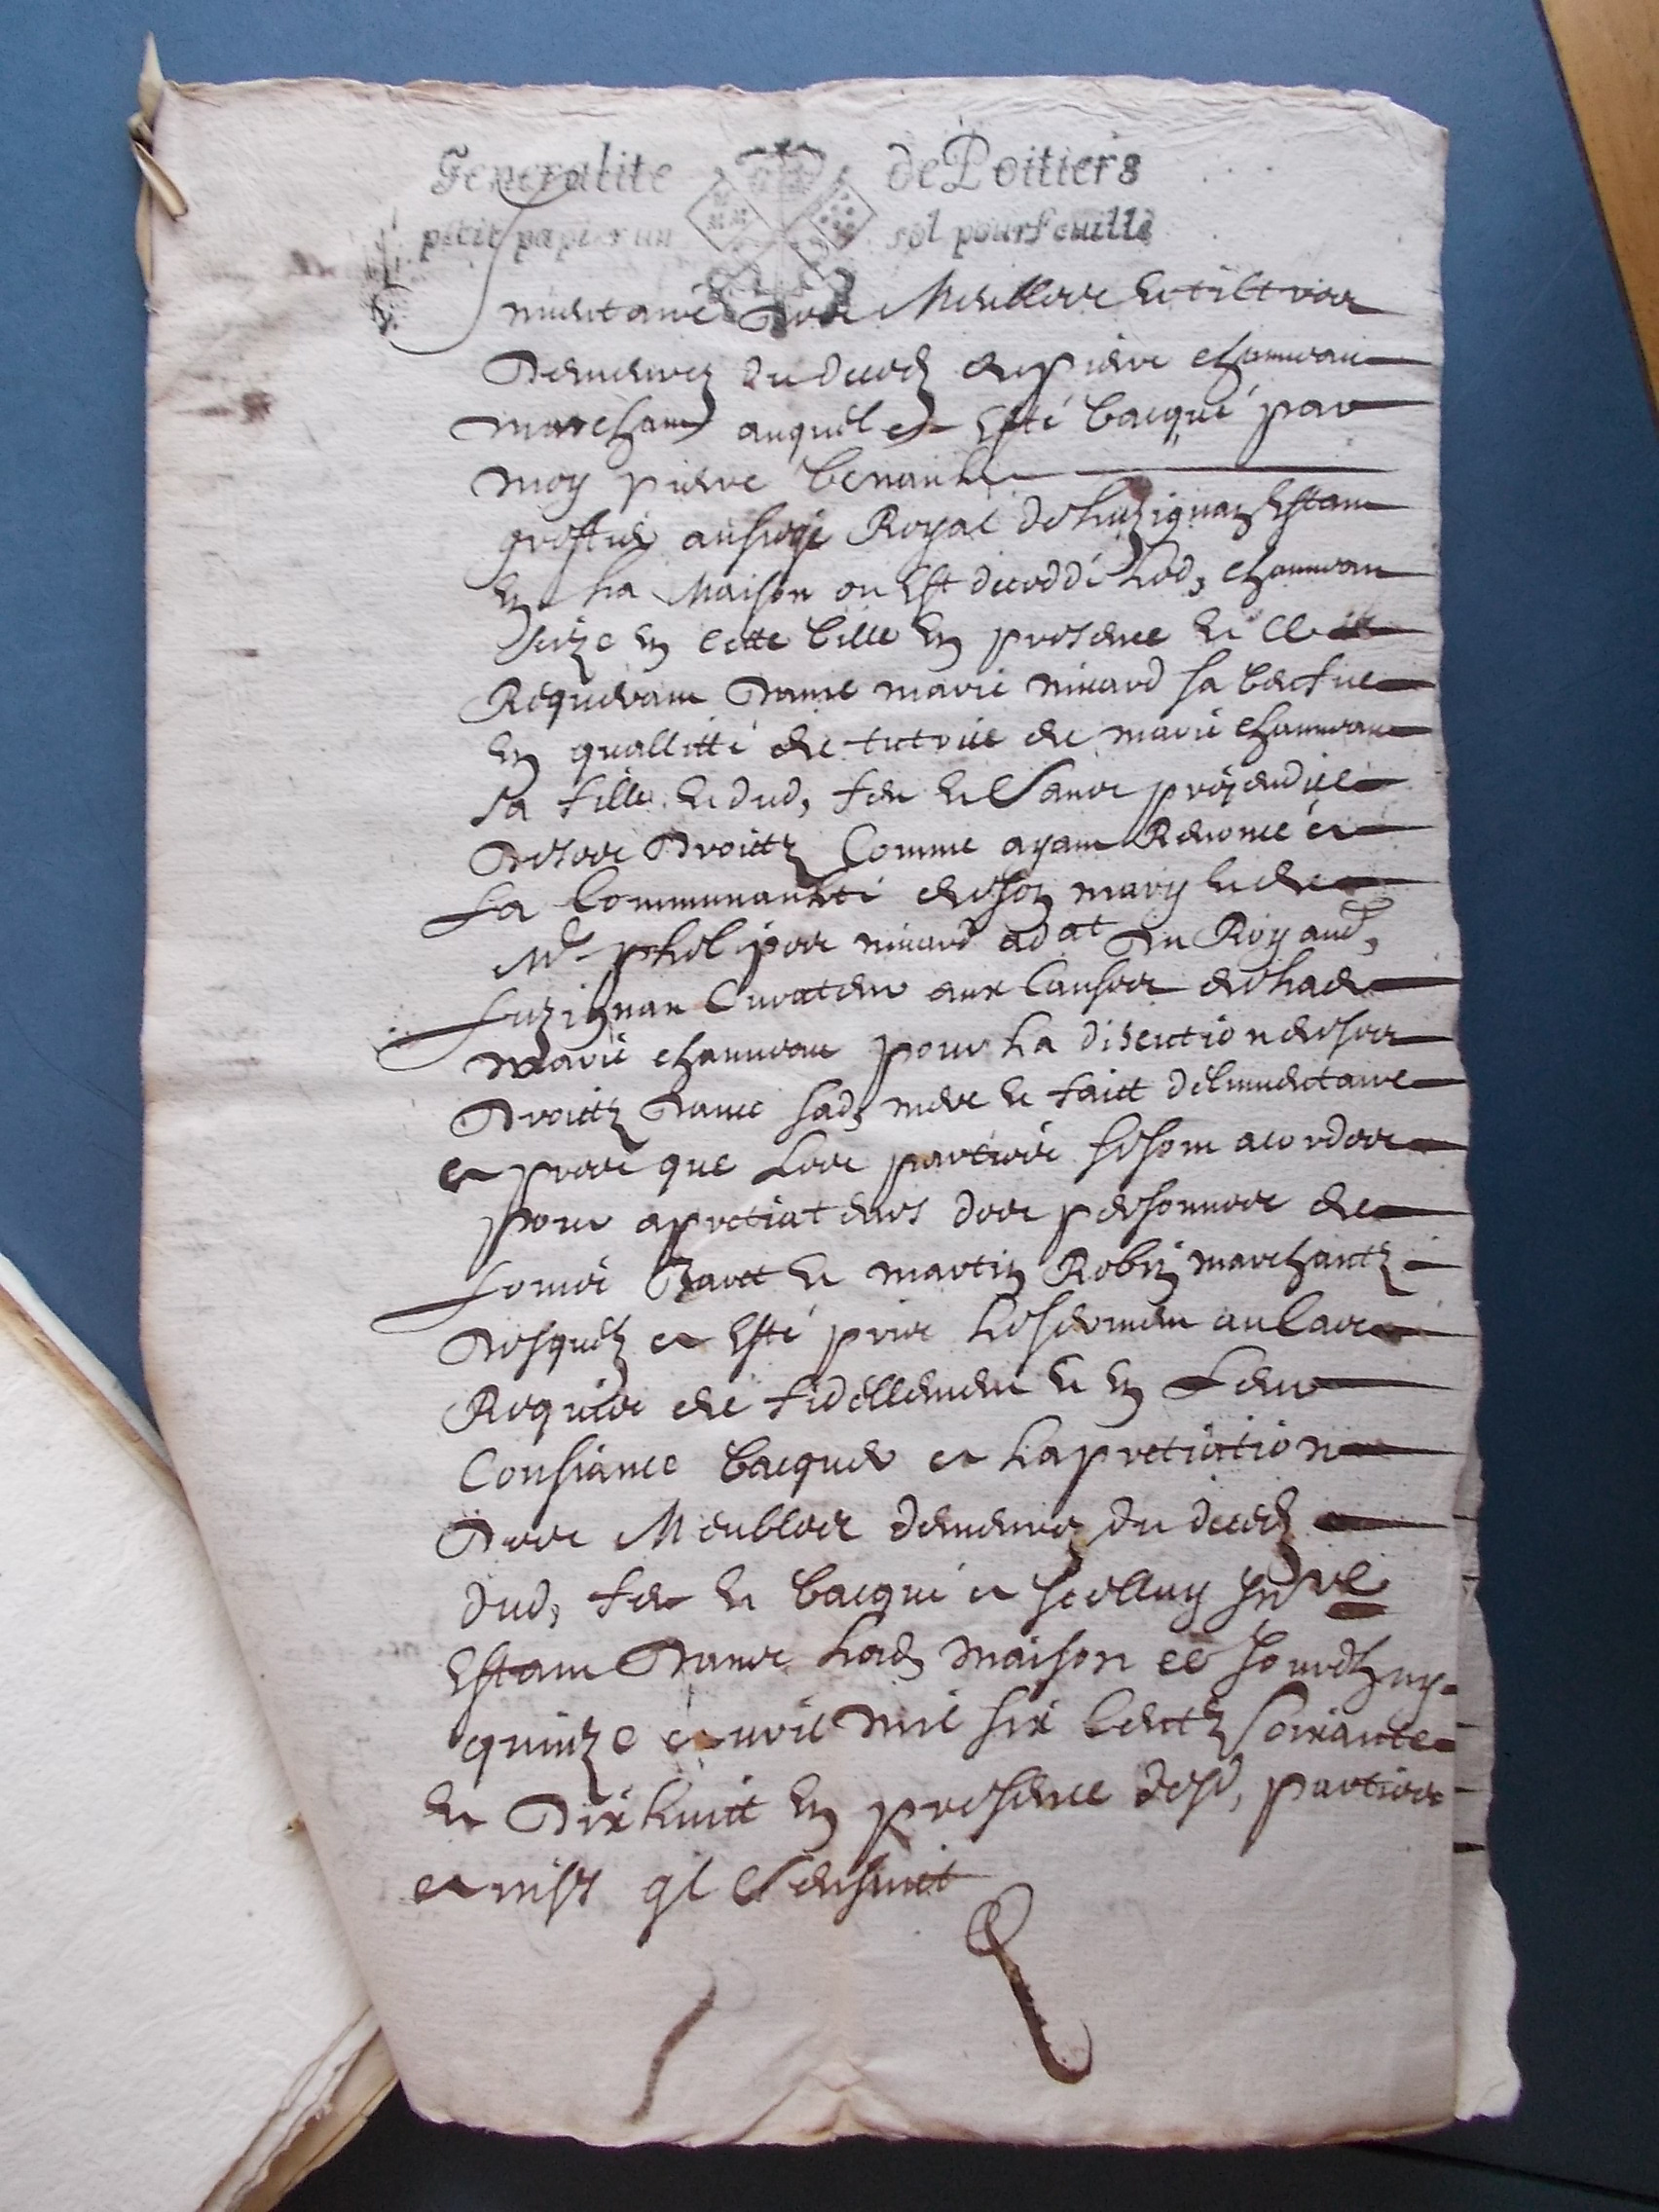 Generalite de Poitiers
petit papier un sol pour feuille
Inventaire des Meubles et tiltres
demeurez du decedz de pierre chauveau
marchand auquel a esté vacqué par
moy pierre
greffier au siege Royal de Luzignan Estant
En la Maison ou Est deceddé led, chauveau
size En cette ville En presence et ce
Requerant dame marie minard sa vefve
En quallitté de tutrice de marie chauveau
sa fille et dud, feu et Sans prejudice
de ses droittz Comme ayant Renoncé a
La Communaulté de son mary et de
Me philipes minard adat du Roy aud,
Luzignan Curateur aux causes de lad
Marie chauveau pour la disention de ses
droittz dance sad, mere et faict d'Inventaire
a pres que Les parties se sont acordees
pour apretiateurs des personnes de
Louis et martin Robin marchantz
desquelz a esté pris le serment au cas
Requis de fidellement et En Leur
Consiance vacquer a l'apretiation
des Meubles demeurez du decedz
dud, feu et vacqué a Icelluy Inre
Estant dans lad maison ce Jourdhuy
quinze avril mil six centz Soixante
et dix huict En presence desd, parties
a nisy ql Sensuict